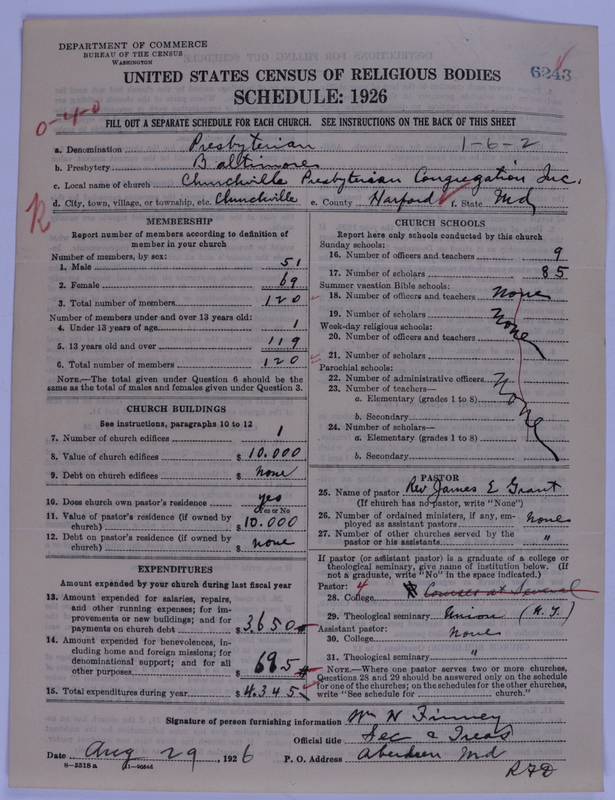 DEPARTMENT OF COMMERCE
BUREAU OF THE CENSUS
WASHINGTON
UNITED STATES CENSUS OF RELIGIOUS BODIES
6243
SCHEDULE: 1926
0-4-0
FILL OUT A SEPARATE SCHEDULE FOR EACH CHURCH. SEE INSTRUCTIONS ON THE BACK OF THIS SHEET
a. Denomination Presbyterian 1-6-2
b. Presbytery Baltimore
c. Local name of church Churchville Presbyterian Congregation Inc.
d. City, town, village, or township, etc. Churchville e. County Harford f. State Md
R
MEMBERSHIP
Report number of members according to definition of
member in your church
Number of members, by sex:
1. Male 51
2. Female 69
3. Total number of members 120
Number of members under and over 13 years old:
4. Under 13 years of age 1
5. 13 years old and over 119
6. Total number of members 120
NOTE.—The total given under Question 6 should be the
same as the total of males and females given under Question 3.
CHURCH BUILDINGS
See instructions, paragraphs 10 to 12
7. Number of church edifices 1
8. Value of church edifices $ 10.000
9. Debt on church edifices $ none
10. Does church own pastor's residence yes
Yes or No
11. Value of pastor's residence (if owned by
church) $ 10.000
12. Debt on pastor's residence (if owned by
church) $ none
EXPENDITURES
Amount expended by your church during last fiscal year
13. Amount expended for salaries, repairs,
and other running expenses; for im-
provements or new buildings; and for
payments on church debt $ 3650
14. Amount expended for benevolences, in-
cluding home and foreign missions; for
denominational support; and for all
other purposes $ 695
15. Total expenditures during year $ 4.345
CHURCH SCHOOLS
Report here only schools conducted by this church
Sunday schools:
16. Number of officers and teachers 9
17. Number of scholars 85
Summer vacation Bible schools:
18. Number of officers and teachers none
19. Number of scholars None
Week-day religious schools:
20. Number of officers and teachers
21. Number of scholars
Parochial schools:
22. Number of administrative officers None
23. Number of teachers—
a. Elementary (grades 1 to 8)
b. Secondary
24. Number of scholars—
a. Elementary (grades 1 to 8)
b. Secondary
PASTOR
25. Name of pastor Rev James E Grant
(If church has no pastor, write "None")
26. Number of ordained ministers, if any, em-
ployed as assistant pastors none
27. Number of other churches served by the
pastor or his assistants "
If pastor (or assistant pastor) is a graduate of a college or
theological seminary, give name of institution below. (If
not a graduate, write "No" in the space indicated.)
Pastor: 4
28. College Courses at Several
29. Theological seminary Union (N.Y.)
Assistant pastor:
30. College none
31. Theological seminary "
NOTE.—Where one pastor serves two or more churches,
Questions 28 and 29 should be answered only on the schedule
for one of the churches; on the schedules for the other churches,
write "See schedule for church."
Signature of person furnishing information Wm N Finney
Official title Sec & Treas
Date Aug 29, 1926 P. O. Address Aberdeen Md
8-5518 a
RFD